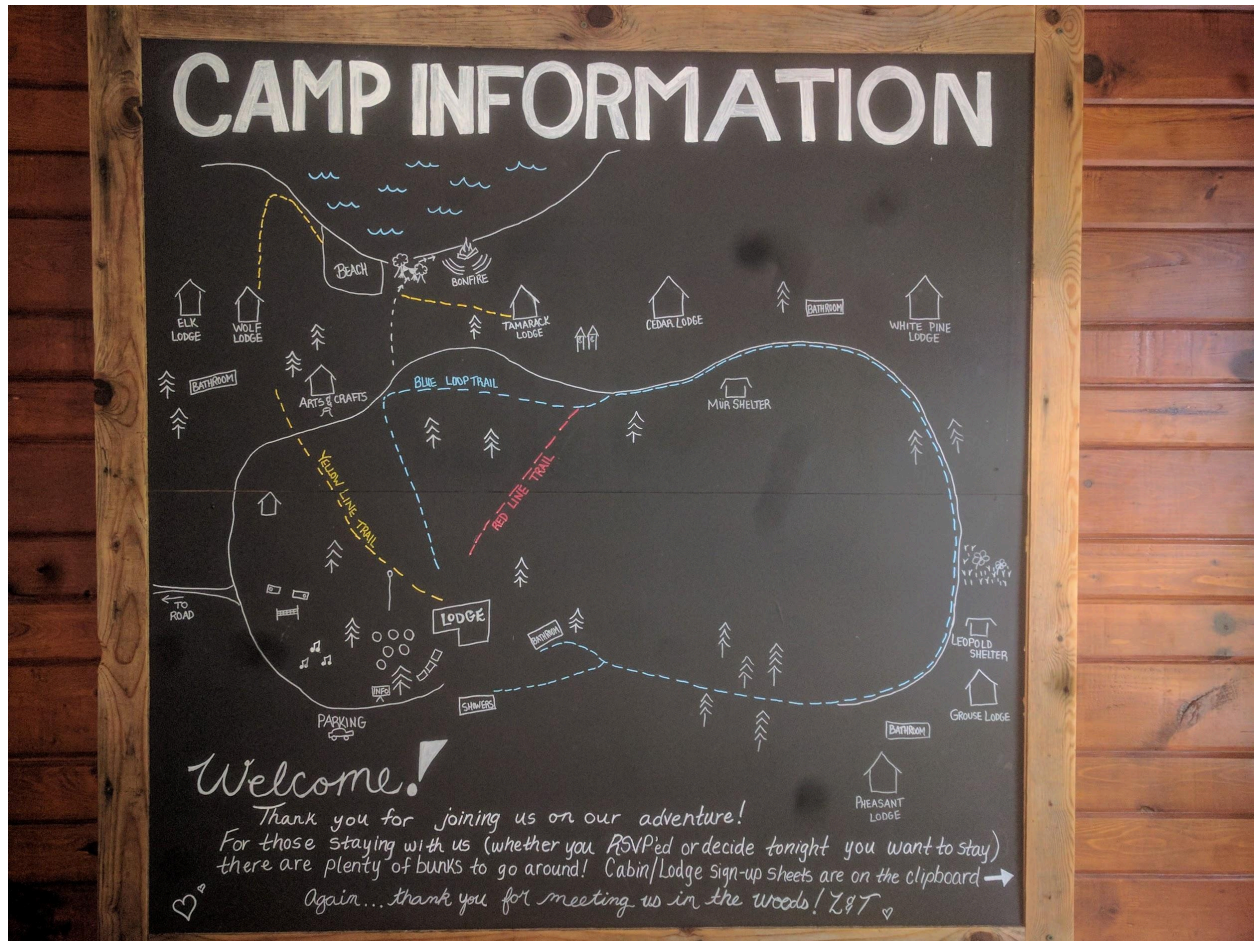 CAMP INFORMATION
BEACH
BONFIRE
ELK
LODGE
WOLF
LODGE
TAMARACK
LODGE
CEDAR LODGE
BATHROOM
WHITE PINE
LODGE
BATHROOM
ARTS & CRAFTS
BLUE LOOP TRAIL
MUR SHELTER
YELLOW LINE TRAIL
RED LINE TRAIL
TO
ROAD
LODGE
BATHROOM
LEOPOLD
SHELTER
INFO
SHOWERS
GROUSE LODGE
PARKING
BATHROOM
PHEASANT
LODGE
Welcome!
Thank you for joining us on our adventure!
For those staying with us (whether you RSVP'ed or decide tonight you want to stay)
there are plenty of bunks to go around! Cabin/Lodge sign-up sheets are on the clipboard →
Again... thank you for meeting us in the woods! Z&T